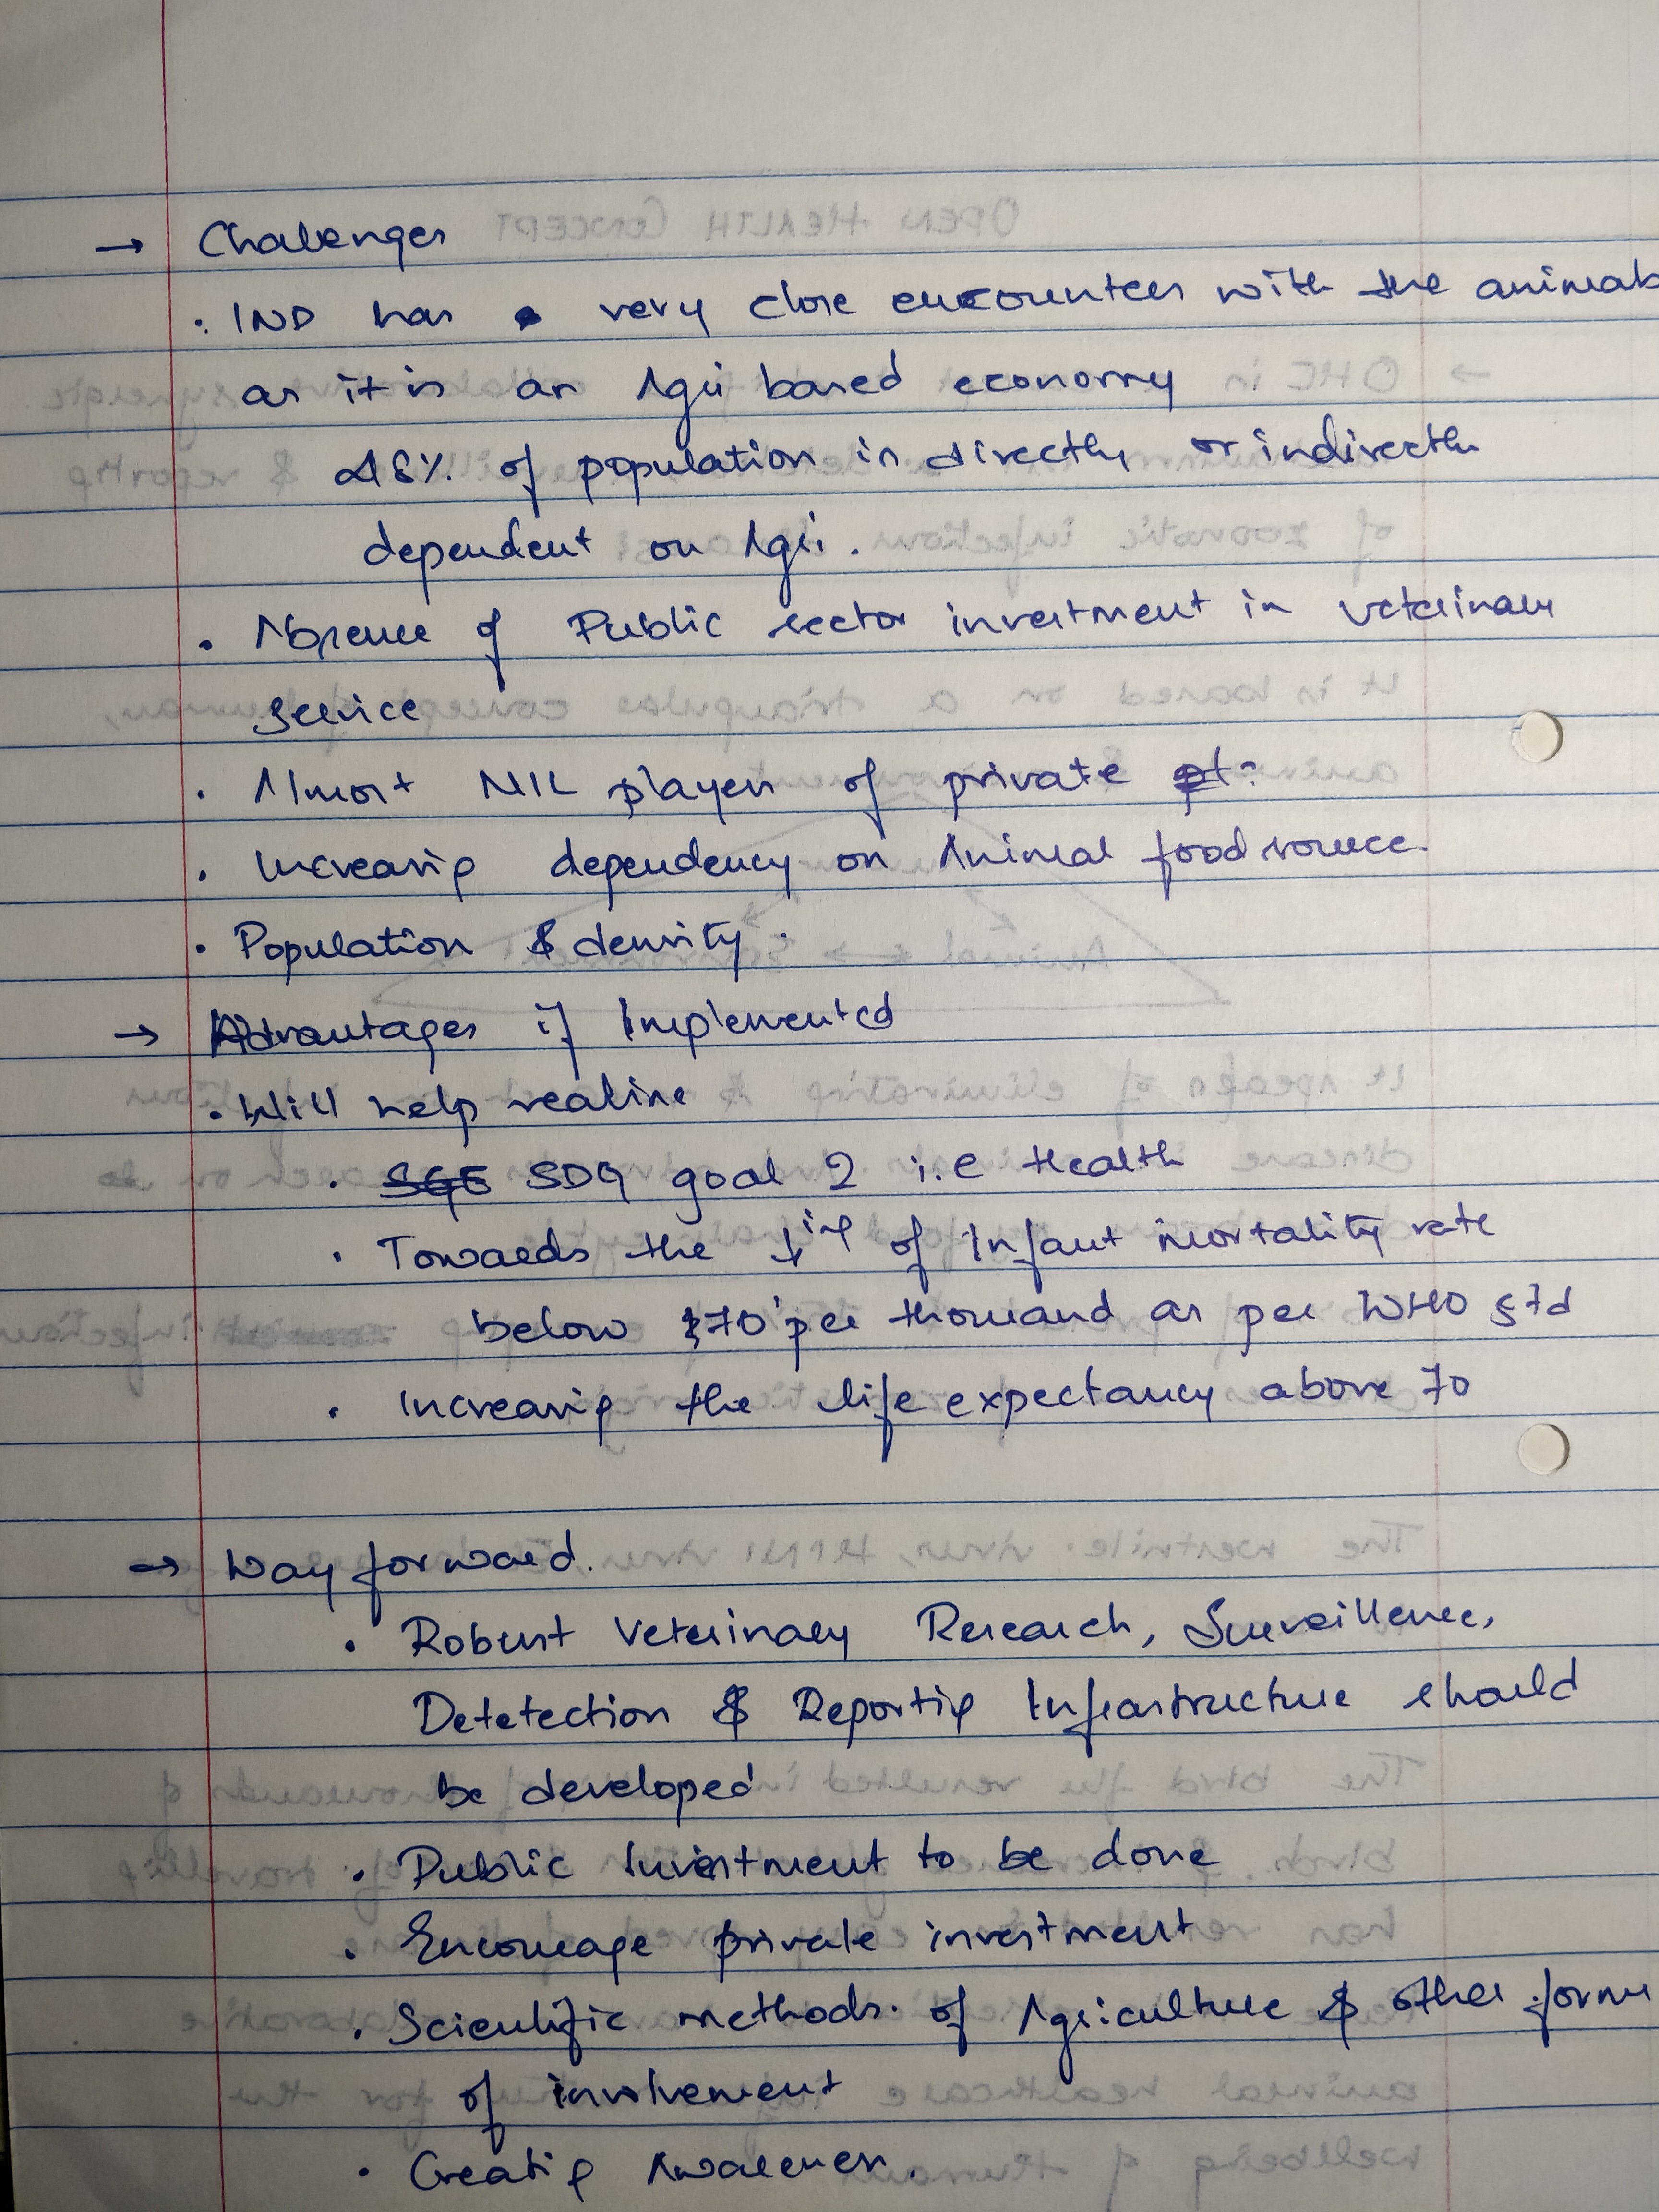 → Challenges
. IND has very close encounters with the animals
as it is an Agri based economy
48% of population is directly or indirectly
dependent on Agri.
. Absence of Public sector investment in veterinary
service
. Almost NIL players of private
. Increasing dependency on Animal food source.
. Population & density.
→ Advantages if Implemented
. Will help realise
. SGE SDG goal 2 i.e Health
. Towards the ↓ing of Infant mortality rate
below 70 per thousand as per WHO std
. Increasing the life expectancy above 70
→ Way forward.
. Robust Veterinary Research, Surveillence,
Detetection & Reporting Infrastructure should
be developed
. Public Investment to be done
. Encourage private investment
. Scientific methods. of Agriculture & other forms
of involvement
. Creating Awareness.